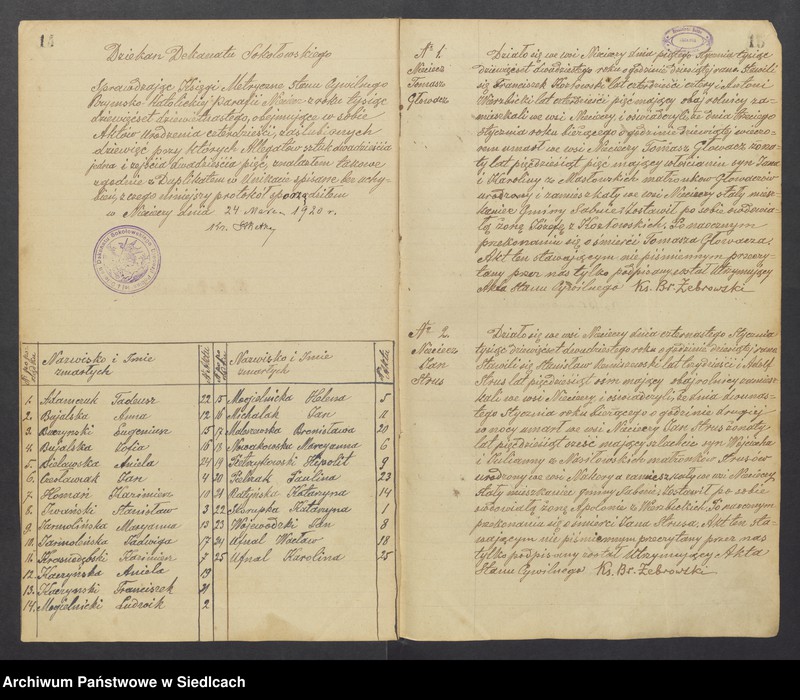 14
Dziekan Dekanatu Sokołowskiego
Sprawdzając Księgi Metryczne stanu Cywilnego
Rzymsko-Katolickiej Parafii Nieciecz z roku tysiąc
dziewięćset dziewiętnastego, obejmujące w sobie
Aktów Urodzenia czterdzieści, zaślubionych
dziewięć przy których Allegatów sztuk dwadzieścia
jedna i zejścia dwadzieścia pięć, znalazłem takowe
zgodnie z Duplikatem w Unikacie spisane bez uchy-
bień, z czego niniejszy protokół sporządziłem
w Nieciecy dnia 24 Marca 1920 r.
Nazwisko i Imie zmarłych
1. Adamczuk Tadeusz 22
2. Bujalska Anna 12
3. Baczynski Eugeniusz 15
4. Bujalska Zofia 16
5. Bielawska Aniela 24
6. Cieślawiak Jan 4
7. Homań Kazimierz 10
8. Iwański Stanisław 3
9. Jarmolińska Maryanna 13
10. Jarmolińska Jadwiga 17
11. Krasnodębski Kazimierz 7
12. Kaczyńska Aniela 19
13. Kaczyński Franciszek 21
14. Mogielnicki Ludwik 2
Nazwisko i Imie zmarłych
15 Mogielnicka Helena 5
16 Michalak Jan 11
17 Malwszewska Bronisława 20
18 Nowakowska Maryanna 6
19 Pietrzykowski Hipolit 9
20 Pietrak Paulina 23
21 Ratyńska Katarzyna 14
22 Skorupka Katarzyna 1
23 Wojewódzki Jan 8
24 Ufnal Wacław 18
25 Ufnal Karolina 25
15
No 1.
Nieciecz
Tomasz
Głowacz
Działo się we wsi Nieciecy dnia piątego Stycznia tysiąc
dziewięćset dwudziestego roku o godzinie dziewiątej rano. Stawili
się Franciszek Kozłowski lat czterdzieści cztery i Antoni
Wierzbicki lat czterdzieści pięć mający obaj rolnicy za-
mieszkali we wsi Nieciecy i oświadczyli, że dnia trzeciego
stycznia roku bieżącego o godzinie dziewiątej wieczo-
rem umarł we wsi Nieciecy Tomasz Głowacz żona-
ty lat pięćdziesiąt pięć mający włościanin syn Jana
i Karoliny z małżonków Głowaczów
urodzony i zamieszkały we wsi Nieciecy stały miesz-
kaniec Gminy Sabnie. Zostawił po sobie owdowia-
łą żonę Józefę z Kozłowskich. Po naocznym
przekonaniu się o śmierci Tomasza Głowacza,
Akt ten stawającym niepiśmiennym przeczy-
tany przez nas tylko podpisany został Utrzymujący
Akta Stanu Cywilnego Ks. Br. Żebrowski
No 2.
Nieciecz
Jan
Strus
Działo się we wsi Nieciecy dnia czternastego Stycznia
tysiąc dziewięćset dwudziestego roku o godzinie dziesiątej rano
Stawili się Stanisław Kuniszewski lat trzydzieści i Adolf
Strus lat pięćdziesiąt ośm mający obaj rolnicy zamiesz-
kali we wsi Nieciecy i oświadczyli, że dnia dwunas-
tego Stycznia roku bieżącego o godzinie drugiej
w nocy umarł we wsi Nieciecy Jan Strus żonaty
lat pięćdziesiąt sześć mający szlachcic syn Wojciecha
i Julianny z Nasiłowskich małżonków Strusów
urodzony we wsi Nakory a zamieszkały we wsi Nieciecy
stały mieszkaniec gminy Sabnie. Zostawił po sobie
owdowiałą żonę Apolonię z Wierzbickich. Po naocznym
przekonaniu się o śmierci Jana Strusa, Akt ten sta-
wającym nie piśmiennym przeczytany przez nas
tylko podpisany został Utrzymujący Akta
Stanu Cywilnego Ks. Br. Żebrowski
Archiwum Państwowe w Siedlcach